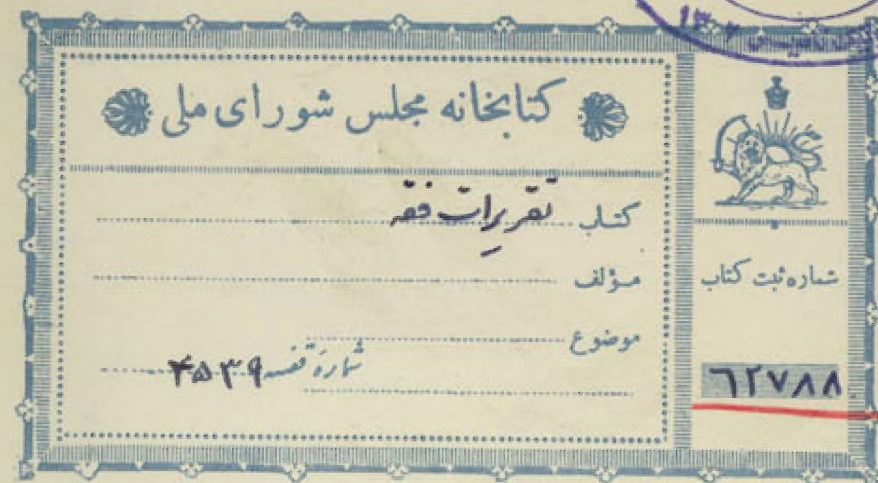 کتابخانه مجلس شورای ملی
کتاب تقریرات فقه
مؤلف
موضوع
شماره قفسه ۴۵۳۹
شماره ثبت کتاب
۶۲۷۸۸
۱۳۰۲